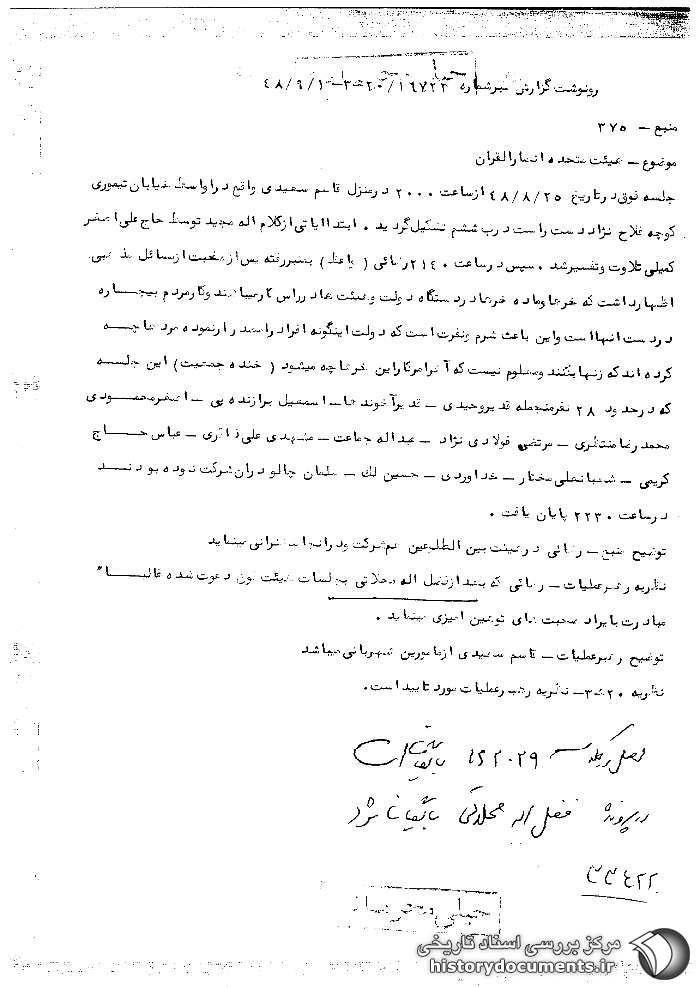 رونوشت گزارش خبر شماره ۱۶۷۲۳/۲۰ ه ۳ - ۴۸/۹/۱
منبع – ۳۷۵
موضوع – هیئت متحده انصارالقران
جلسه فوق در تاریخ ۴۸/۸/۲۵ از ساعت ۲۰۰۰ در منزل قاسم سعیدی واقع در اواسط خیابان تیموری
کوچه فلاح نژاد دست راست درب ششم تشکیل گردید . ابتدا ایاتی از کلام اله مجید توسط حاج علی اصغر
کمیلی تلاوت و تفسیر شد . سپس در ساعت ۲۱۴۰ رضائی ( واعظ ) بمنبر رفته پس از صحبت از مسائل مذهبی
اظهار داشت که خرها و ماده خرها در دستگاه دولت و هیئت ها در راس کارها میباشند و کار مردم بیچاره
در دست انها است و این باعث شرم و نفرت است که دولت اینگونه افراد را مصدر کار نموده مرد ها چه
کرده اند که زنها بکنند و معلوم نیست که آخر امر کار این خرها چه میشود ( خنده جمعیت ) این جلسه
که در حدود ۲۸ نفر منجمله قدیر وحیدی – قدیر آخوند ها – اسمعیل برازنده پی – اصغر محمودی
محمد رضا منتظری – مرتضی فولادی نژاد – عبداله جماعت – مشهدی علی ذاکری – عباس حاج
کریمی – شعبانعلی مختار – خداوردی – حسین لك – سلمان چالو دران شرکت نموده بودند
در ساعت ۲۲۳۰ پایان یافت .
توضیح منبع – رضائی در هیئت بین الطلوعین هم شرکت و در انجا سخنرانی مینماید
نظریه رهبر عملیات – رضائی که بعد از فضل اله محلاتی بجلسات هیئت فوق دعوت شده غالبا"
مبادرت بایراد صحبت های توهین امیزی مینماید .
توضیح رهبر عملیات – قاسم سعیدی از مامورین شهربانی میباشد
نظریه ۲۰ ه ۳ – نظریه رهبر عملیات مورد تایید است .
اصل در کلاسه ۴۲۰۲۹ بایگانی است
در پرونده فضل اله محلاتی بایگانی شود
۳۳۴۲۲
خیلی محرمانه
مرکز بررسی اسناد تاریخی
historydocuments.ir